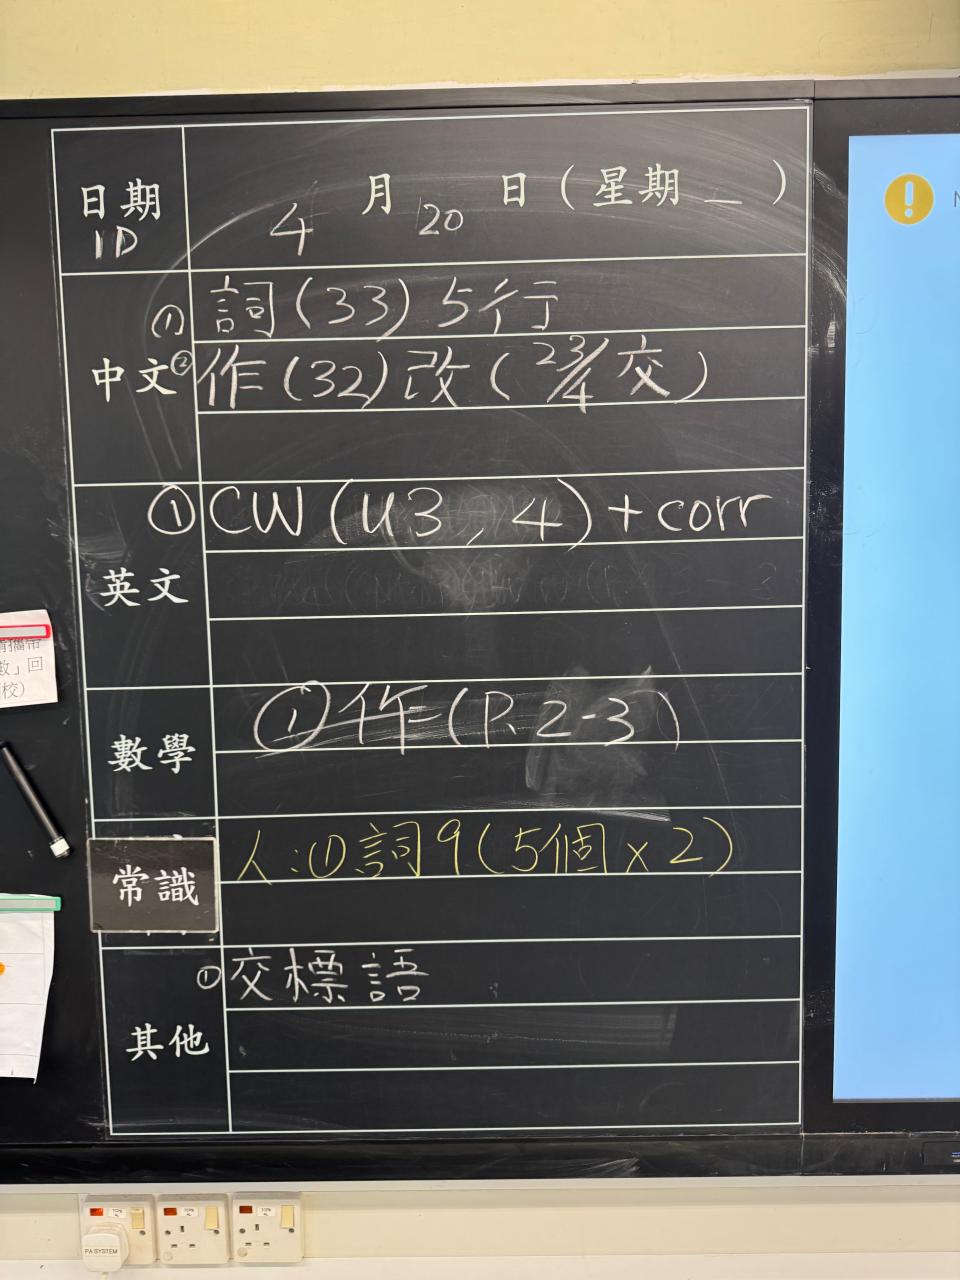 日期 4月20日(星期一)
1D
中文
① 詞(33)5行
② 作(32)改(23/4交)
英文
① CW(U3,4)+corr
數學
①作(P.2-3)
常識
人:①詞9(5個x2)
其他
①交標語
數」回
校)
PA SYSTEM